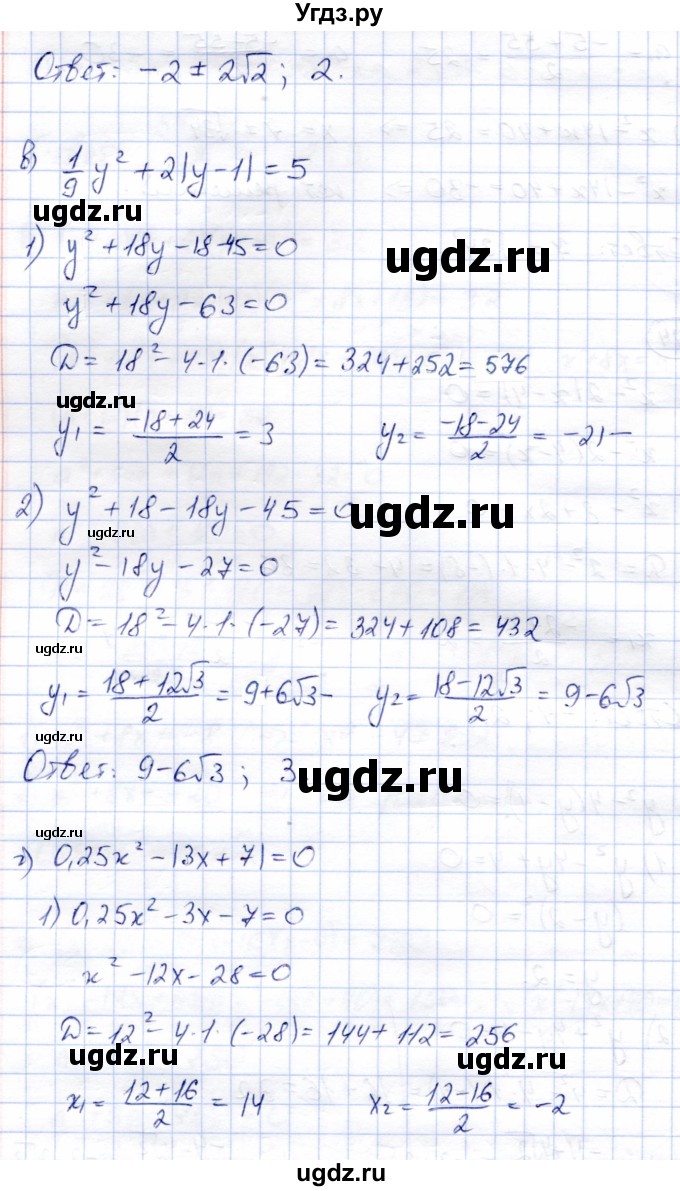 Угдз.ру
Ответ: -2 ± 2√2; 2.
в) 1/9 y² + 2|y-1| = 5
ugdz.ru
1) y² + 18y - 18-45 = 0
ugdz.ru
y² + 18y - 63 = 0
D = 18² - 4·1·(-63) = 324 + 252 = 576
ugdz.ru
y₁ = (-18+24)/2 = 3 y₂ = (-18-24)/2 = -21 -
2) y² + 18 - 18y - 45 = 0
ugdz.ru
ugdz.ru
y² - 18y - 27 = 0
D = 18² - 4·1·(-27) = 324 + 108 = 432
ugdz.ru
y₁ = (18+12√3)/2 = 9+6√3 - y₂ = (18-12√3)/2 = 9-6√3
ugdz.ru
Ответ: 9-6√3; 3
ugdz.ru
ugdz.ru
г) 0,25x² - |3x+7| = 0
1) 0,25x² - 3x - 7 = 0
x² - 12x - 28 = 0
D = 12² - 4·1·(-28) = 144 + 112 = 256
ugdz.ru
ugdz.ru
x₁ = (12+16)/2 = 14 x₂ = (12-16)/2 = -2
ugdz.ru